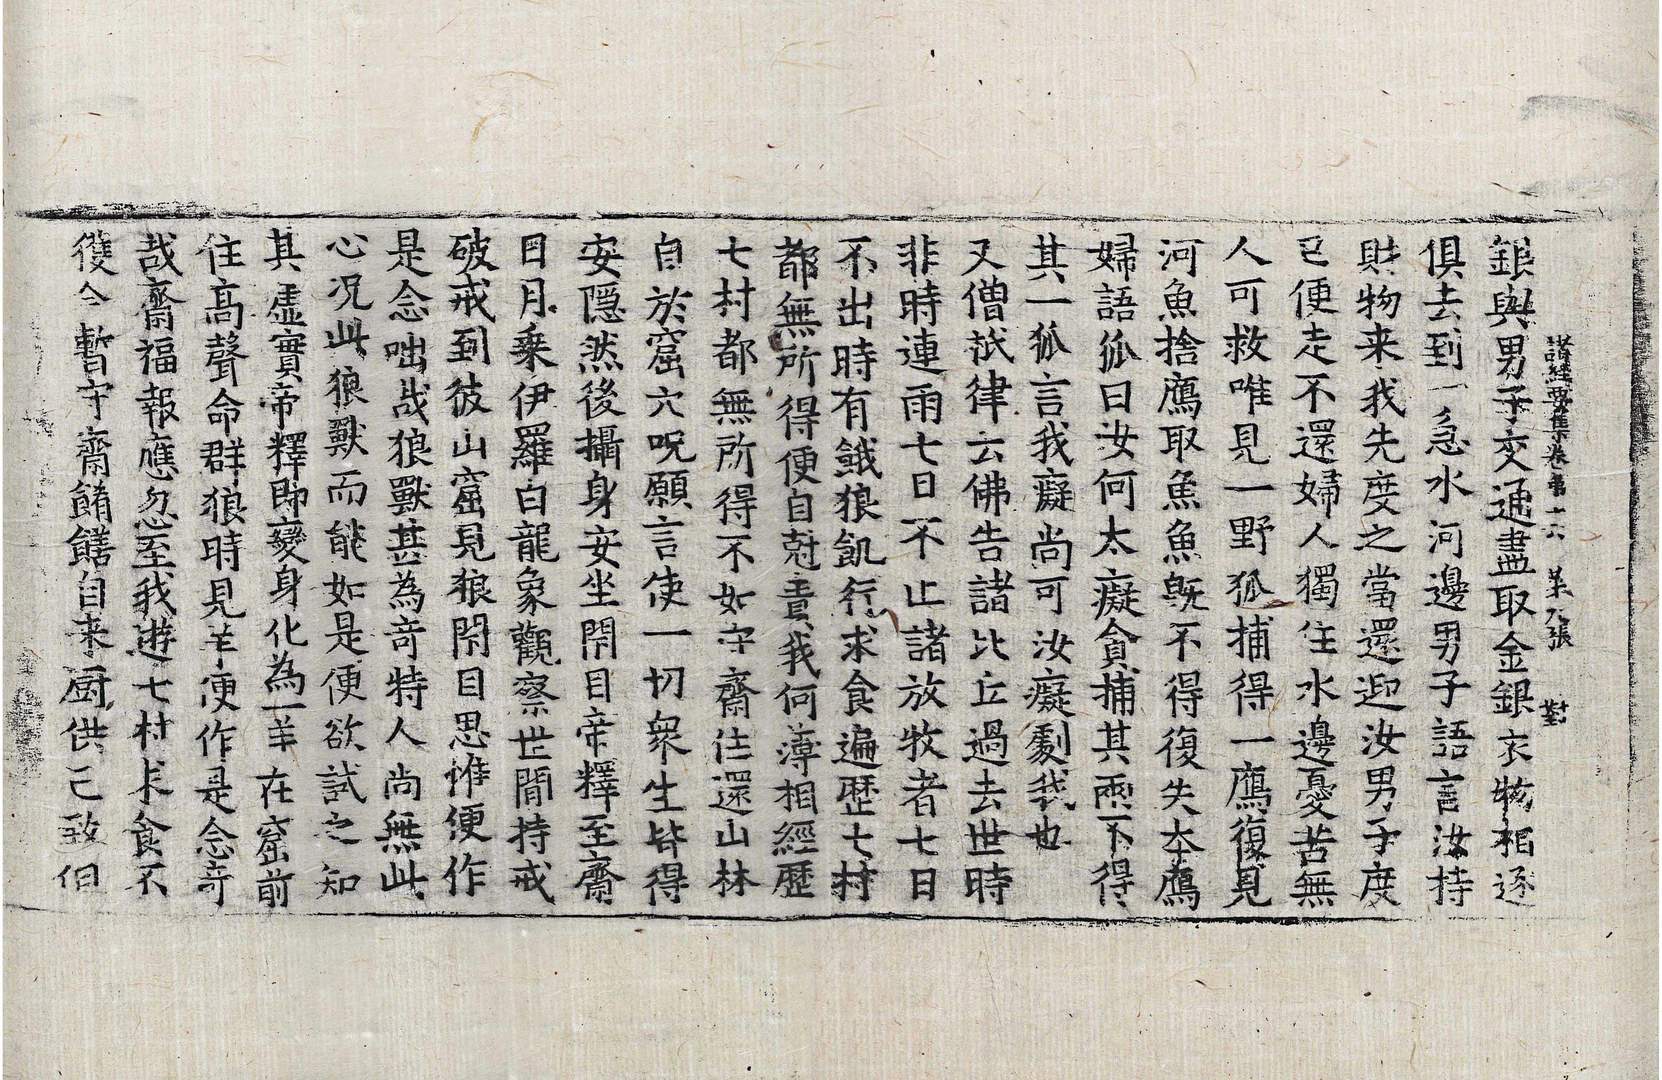 諸經要集卷第十六 第九張 對
銀與男子交通盡取金銀衣物相逐
俱去到一急水河邊男子語言汝持
財物来我先度之當還迎汝男子度
已便走不還婦人獨住水邊憂苦無
人可救唯見一野狐捕得一鷹復見
河魚捨鷹取魚魚旣不得復失本鷹
婦語狐曰汝何太癡貪捕其兩不得
其一狐言我癡尚可汝癡劇我也
又僧祇律云佛告諸比丘過去世時
非時連雨七日不止諸放牧者七日
不出時有餓狼飢行求食遍歷七村
都無所得便自剋責我何薄相經歷
七村都無所得不如守齋住還山林
自於窟穴呪願言使一切衆生皆得
安隱然後攝身安坐閇目帝釋至齋
日月乗伊羅白龍象觀察世間持戒
破戒到彼山窟見狼閇目思惟便作
是念咄哉狼獸甚為奇特人尚無此
心况此狼獸而能如是便欲試之知
其虛實帝釋即變身化為一羊在窟前
住高聲命群狼時見羊便作是念奇
哉齋福報應忽至我遊七村求食不
獲今暫守齋餚饍自来厨供已致但